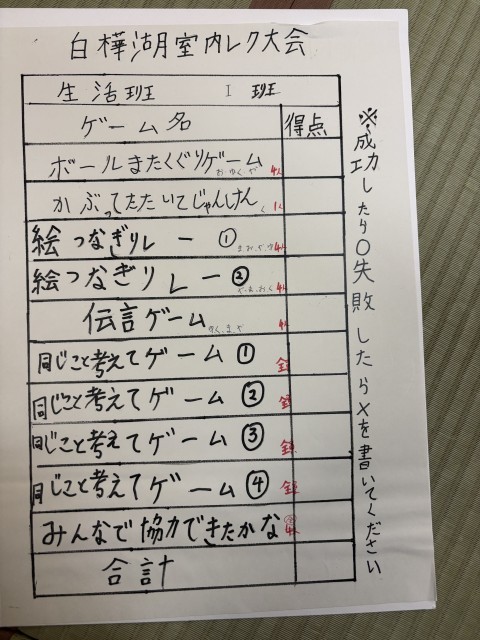 白樺湖室内レク大会
生活班 1 班
ゲーム名 得点
ボールまたくぐりゲーム 4人
かぶってたたいてじゃんけん 1人
絵つなぎリレー① 4人
絵つなぎリレー② 4人
伝言ゲーム 4人
同じこと考えてゲーム① 全
同じこと考えてゲーム② 全
同じこと考えてゲーム③ 全
同じこと考えてゲーム④ 全
みんなで協力できたかな
合計
※成功したら○失敗したら×を書いてください